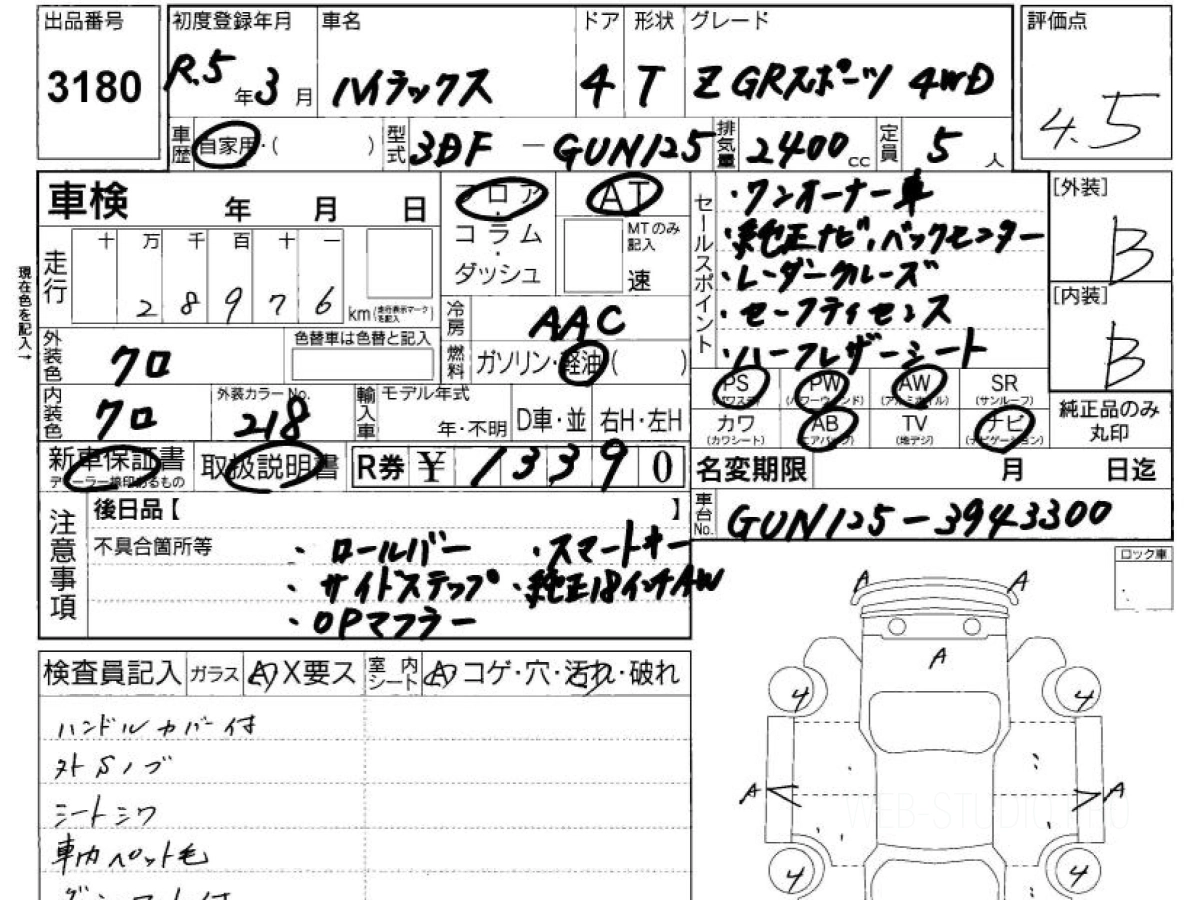 出品番号 初度登録年月 車名 ドア 形状 グレード 評価点
3180 R.5年3月 ハイラックス 4 T Z GRスポーツ 4WD 4.5
車歴 自家用・( ) 型式 3DF-GUN125 排気量 2400cc 定員 5人
車検 年 月 日 フロア・コラム・ダッシュ AT MTのみ記入 速
走行 十 万 千 百 十 一
2 8 9 7 6 km(走行表示マークを記入)
現在色を記入→
セールスポイント
・ワンオーナー車
・純正ナビ、バックセンター
・レーダークルーズ
・セーフティセンス
・ハーフレザーシート
[外装] B
[内装] B
冷房 AAC
燃料 ガソリン・軽油( )
外装色 クロ 色替車は色替と記入
内装色 クロ 外装カラーNo. 218 輸入車 モデル年式 年・不明 D車・並 右H・左H
PS (パワステ) PW (パワーウィンド) AW (アルミホイル) SR (サンルーフ)
カワ (カワシート) AB (エアバッグ) TV (地デジ) ナビ (ナビゲーション)
純正品のみ丸印
新車保証書 ディーラー捺印あるもの 取扱説明書 R券 ¥ 13390
名変期限 月 日迄
車台No. GUN125-3943300
注意事項
後日品【 】
不具合箇所等
・ロールバー ・スマートキー
・サイドステップ ・純正18インチAW
・OPマフラー
ロック車
検査員記入 ガラス A X要ス 室内シート A コゲ・穴・汚れ・破れ
ハンドルカバー付
シートシワ
車内ペット毛
A A
A
4 4
A A
4 4
WEB-STUDIO.PRO